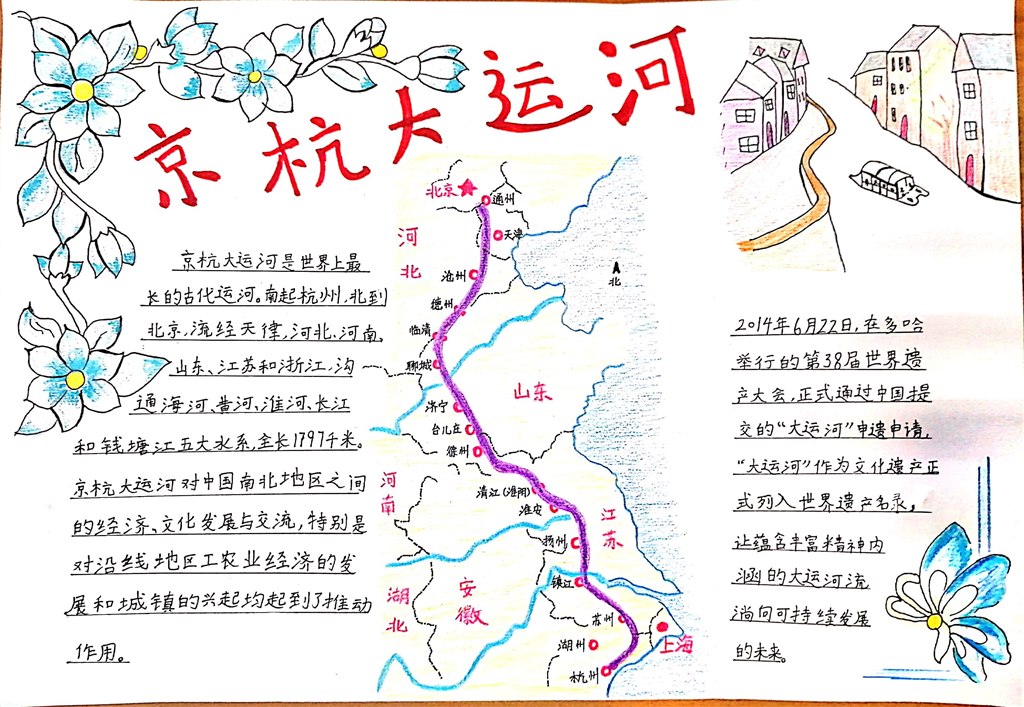 京杭大运河
京杭大运河是世界上最
长的古代运河。南起杭州,北到
北京,流经天律,河北,河南、
山东、江苏和浙江,沟
通海河、黄河、淮河、长江
和钱塘江五大水系,全长1797千米。
京杭大运河对中国南北地区之间
的经济、文化发展与交流,特别是
对沿线地区工农业经济的发
展和城镇的兴起均起到了推动
作用。
北京
通州
天津
河北
沧州
德州
临清
聊城
山东
济宁
台儿庄
徐州
河南
清江(淮阴)
淮安
江苏
扬州
镇江
安徽
湖北
苏州
上海
湖州
杭州
北
2014年6月22日,在多哈
举行的第38届世界遗
产大会,正式通过中国提
交的“大运河”申遗申请,
“大运河”作为文化遗产正
式列入世界遗产名录。
让蕴含丰富精神内
涵的大运河流
淌向可持续发展
的未来。